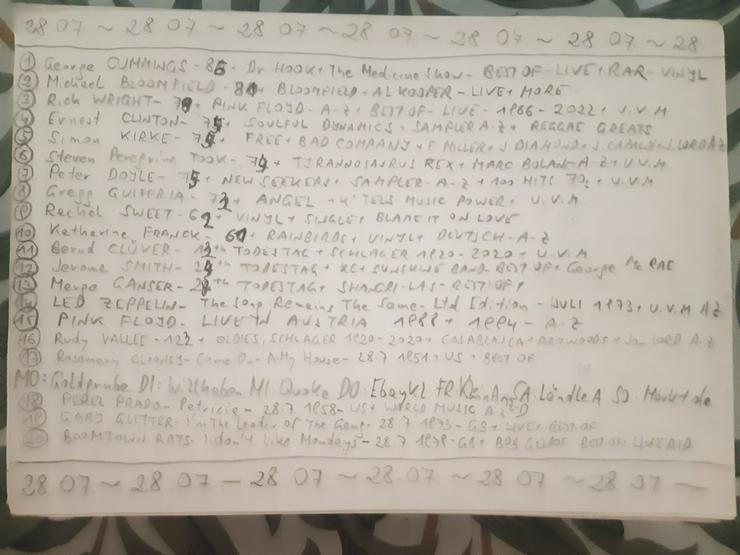 28 07 ~ 28 07 ~ 28 07 ~ 28 07 ~ 28 07 ~ 28 07 ~ 28
① George CUMMINGS - 86 + Dr HOOK + The Medicine Show - BEST OF - LIVE + RAR - VINYL
② Michael BLOOMFIELD - 81 + BLOOMFIELD + AL KOOPER - LIVE + MORE
③ Rick WRIGHT - 79 + PINK FLOYD - A-Z + BEST OF - LIVE - 1966 - 2022 + U.V.M
④ Ernest CLINTON - 75 + SOULFUL DYNAMICS + SAMPLER A-Z + REGGAE GREATS
⑤ Simon KIRKE - 75 + FREE + BAD COMPANY + F MILLER + S DIAMOND + S. LORD A-Z
⑥ Steven Peregrine TOOK - 74 + TYRANNOSAURUS REX + MARC BOLAN - A-Z + U.V.M
⑦ Peter DOYLE - 75 + NEW SEEKERS + SAMPLER - A-Z + 100 HITS 70s + U.V.M
⑧ Gregg GUIFFRIA - 73 + ANGEL + K'TELS MUSIC POWER + U.V.M
⑨ Rachel SWEET - 62 + VINYL + SINGLE + BLAME IT ON LOVE
⑩ Katharina FRANCK - 61 + RAINBIRDS + VINYL + DEUTSCH - A-Z
⑪ Bernd CLÜVER - 13th TODESTAG + SCHLAGER 1920 - 2020 + U.V.M
⑫ Jerome SMITH - 24th TODESTAG + KC + SUNSHINE BAND - BEST OF + George Mc RAE
⑬ Marge GANSER - 28th TODESTAG + SHANGRI-LAS - BEST OF
⑭ LED ZEPPELIN - The Song Remains The Same - Ltd Edition - JULI 1973 + U.V.M AZ
⑮ PINK FLOYD - LIVE IN AUSTRIA 1988 + 1994 - A-Z
⑯ Rudy VALLEE - 123 + OLDIES, SCHLAGER 1920 - 2020 + CASABLANCA + ARTWOODS + Jon LORD A-Z
⑰ Rosemary CLOONEY - Come On - A My House - 28.7 1951 + US + BEST OF
MO: Goldgrube DI: Willhaben MI. Quoka DO: Ebay KL FR. KleinAnz SA. Ländle A SO. Markt de
⑱ PEREZ PRADO - Patricia - 28.7 1958 - US + WORLD MUSIC A-Z
⑲ GARY GLITTER - I'm The Leader Of The Gang - 28.7 1973 - GB + LIVE + BEST OF
⑳ BOOMTOWN RATS - I don't Like Mondays - 28.7 1979 - GB + BOB GELDOF BEST OF + LIVE AID
28 07 ~ 28 07 ~ 28 07 ~ 28 07 ~ 28 07 ~ 28 07 ~